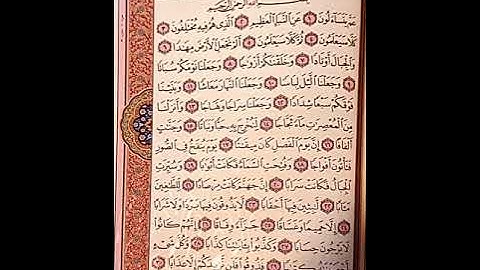 بِسْمِ ٱللَّهِ ٱلرَّحْمَـٰنِ ٱلرَّحِيمِ
عَمَّ يَتَسَآءَلُونَ ١ عَنِ ٱلنَّبَإِ ٱلْعَظِيمِ ٢ ٱلَّذِى هُمْ فِيهِ مُخْتَلِفُونَ ٣
كَلَّا سَيَعْلَمُونَ ٤ ثُمَّ كَلَّا سَيَعْلَمُونَ ٥ أَلَمْ نَجْعَلِ ٱلْأَرْضَ مِهَـٰدًا ٦
وَٱلْجِبَالَ أَوْتَادًا ٧ وَخَلَقْنَـٰكُمْ أَزْوَٰجًا ٨ وَجَعَلْنَا نَوْمَكُمْ سُبَاتًا
٩ وَجَعَلْنَا ٱلَّيْلَ لِبَاسًا ١٠ وَجَعَلْنَا ٱلنَّهَارَ مَعَاشًا ١١ وَبَنَيْنَا
فَوْقَكُمْ سَبْعًا شِدَادًا ١٢ وَجَعَلْنَا سِرَاجًا وَهَّاجًا ١٣ وَأَنزَلْنَا
مِنَ ٱلْمُعْصِرَٰتِ مَآءً ثَجَّاجًا ١٤ لِّنُخْرِجَ بِهِۦ حَبًّا وَنَبَاتًا ١٥ وَجَنَّـٰتٍ
أَلْفَافًا ١٦ إِنَّ يَوْمَ ٱلْفَصْلِ كَانَ مِيقَـٰتًا ١٧ يَوْمَ يُنفَخُ فِى ٱلصُّورِ
فَتَأْتُونَ أَفْوَاجًا ١٨ وَفُتِحَتِ ٱلسَّمَآءُ فَكَانَتْ أَبْوَٰبًا ١٩ وَسُيِّرَتِ
ٱلْجِبَالُ فَكَانَتْ سَرَابًا ٢٠ إِنَّ جَهَنَّمَ كَانَتْ مِرْصَادًا ٢١ لِّلطَّـٰغِينَ
مَـَٔابًا ٢٢ لَّـٰبِثِينَ فِيهَآ أَحْقَابًا ٢٣ لَّا يَذُوقُونَ فِيهَا بَرْدًا وَلَا شَرَابًا
٢٤ إِلَّا حَمِيمًا وَغَسَّاقًا ٢٥ جَزَآءً وِفَاقًا ٢٦ إِنَّهُمْ كَانُوا۟
لَا يَرْجُونَ حِسَابًا ٢٧ وَكَذَّبُوا۟ بِـَٔايَـٰتِنَا كِذَّابًا ٢٨ وَكُلَّ شَىْءٍ
فَذُوقُوا۟ فَلَن نَّزِيدَكُمْ إِلَّا عَذَابًا